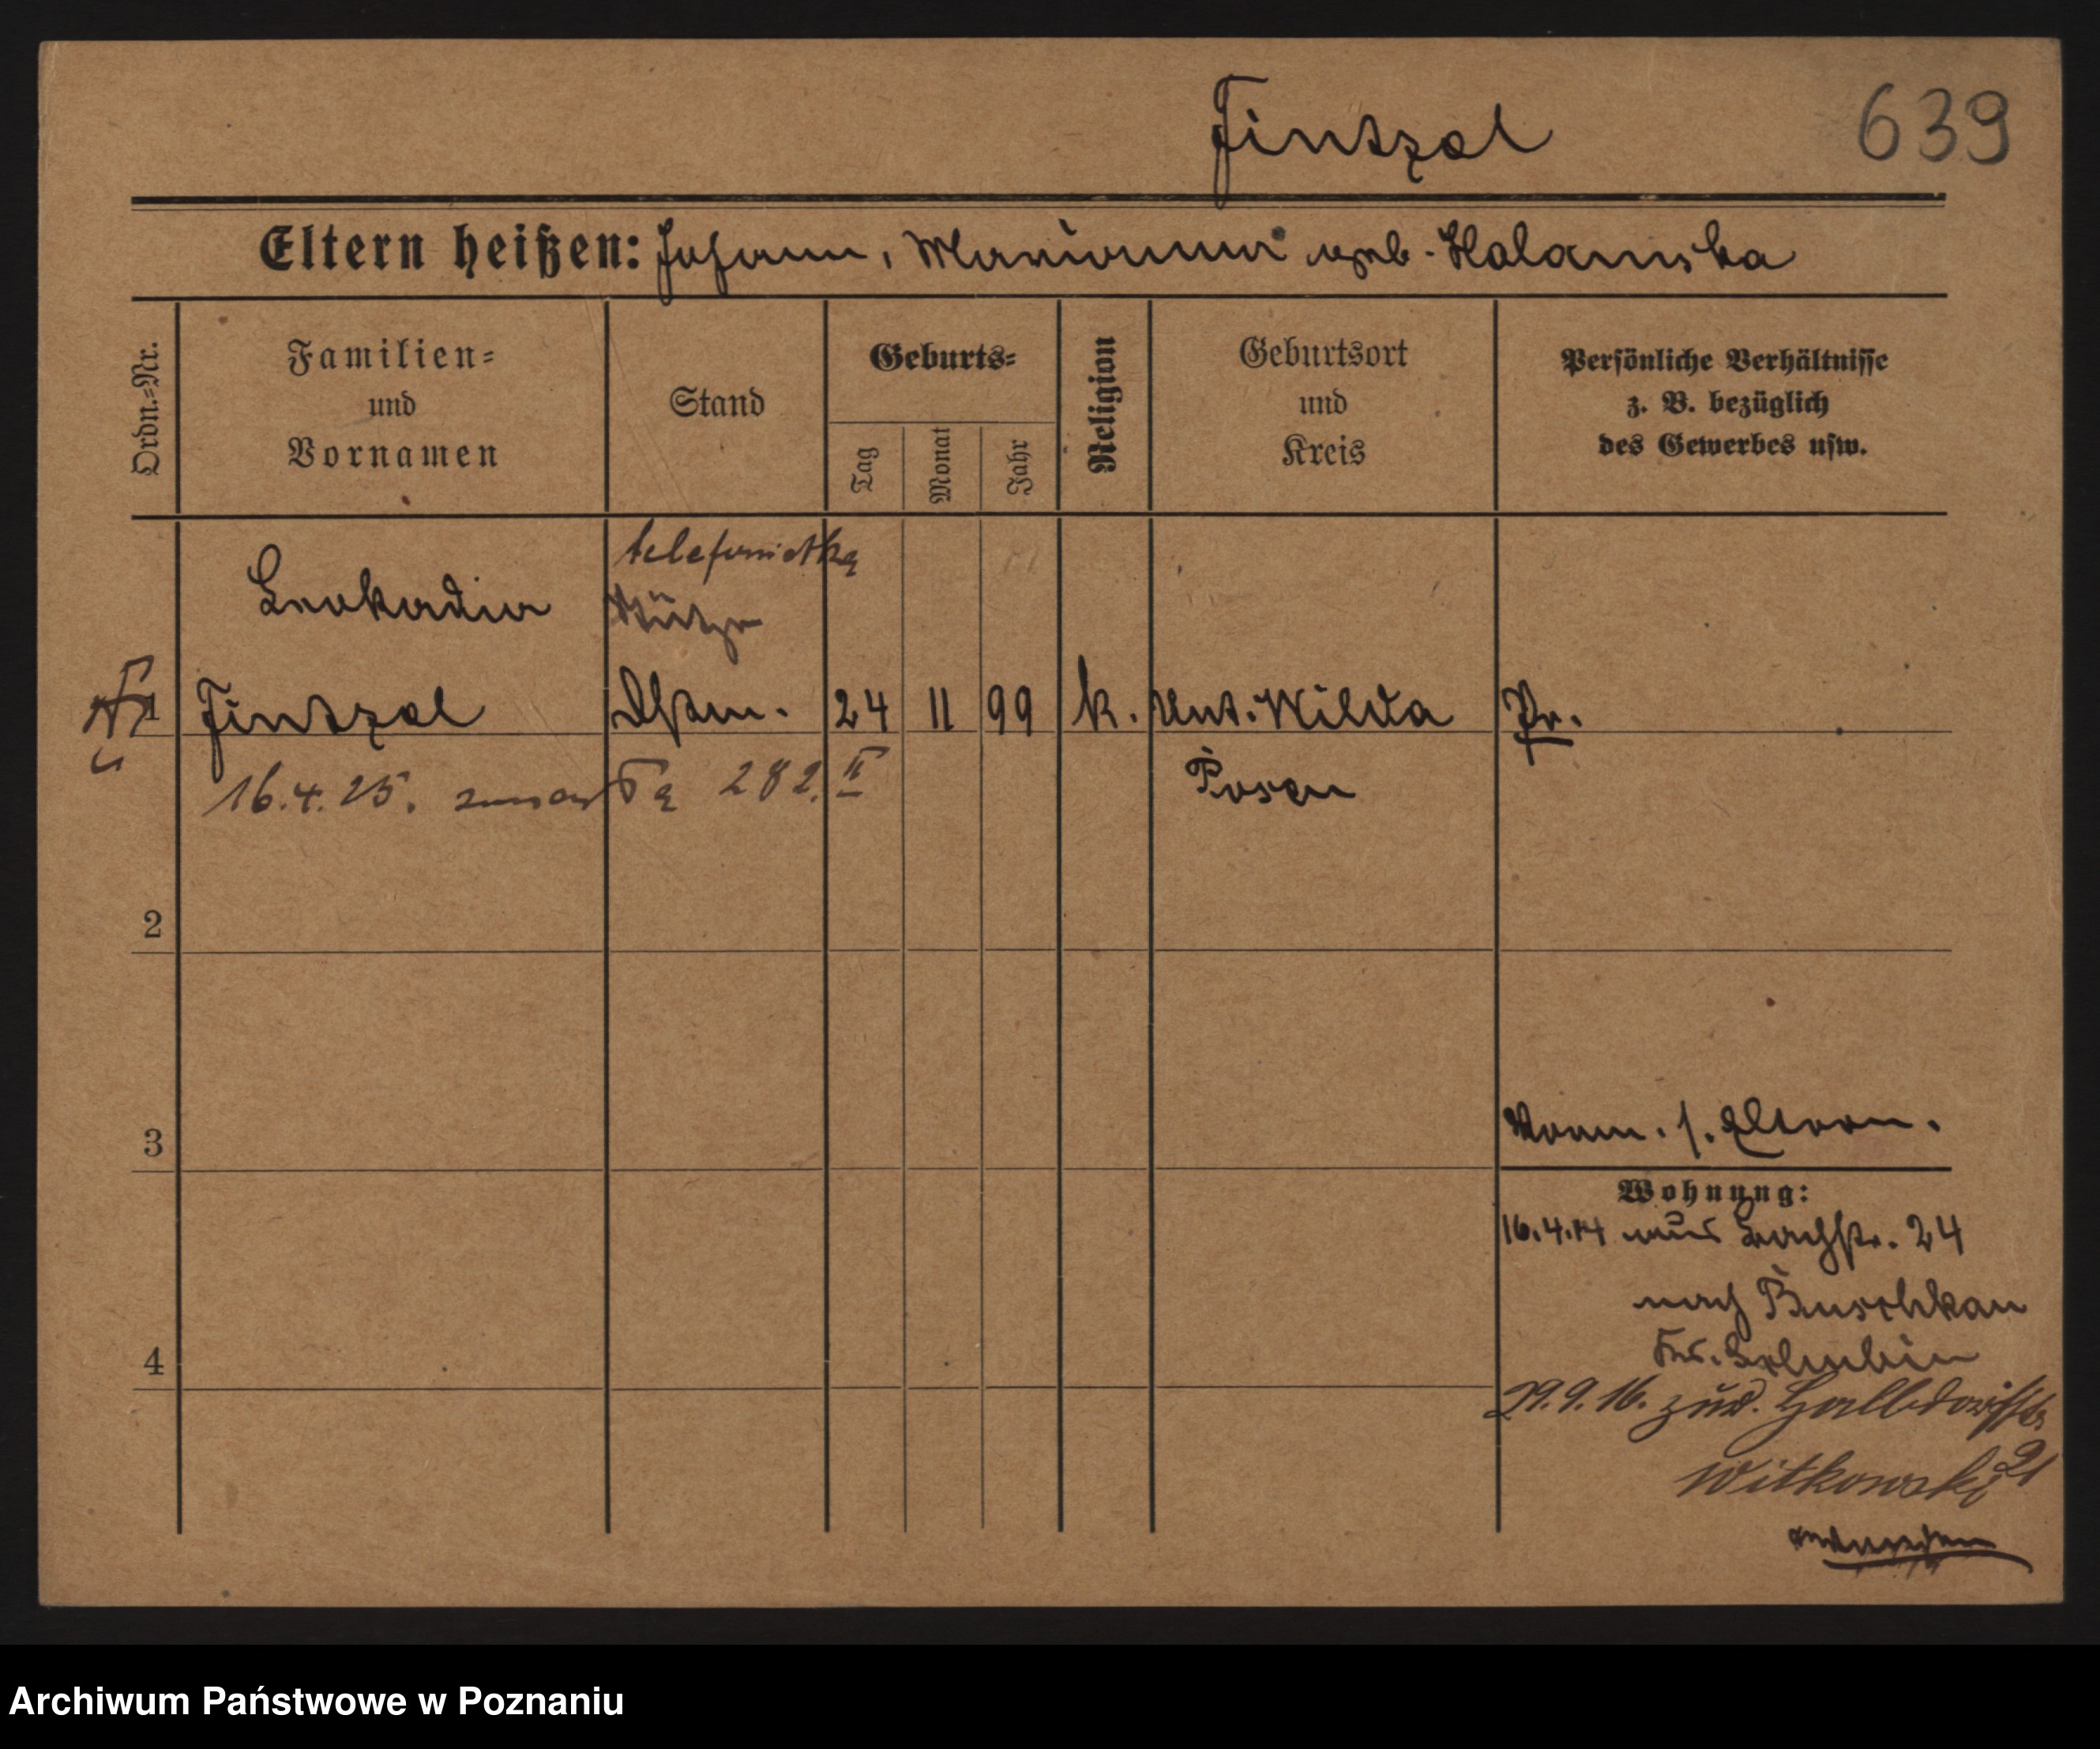 Fintzel
639
Eltern heißen: Johann, Marianna geb. Kalamska
Ordn.=Nr.
Familien=
und
Vornamen
Stand
Geburts=
Tag
Monat
Jahr
Religion
Geburtsort
und
Kreis
Persönliche Verhältnisse
z. B. bezüglich
des Gewerbes usw.
telefonistka
Leokadia
Stütze
1
Fintzel
24
11
99
k.
Unt. Wilda
Pr.
16.4.25. 282. II
Posen
2
3
Vorm. s. Eltern.
Wohnung:
16.4.14 aus Bachstr. 24
nach Buschkau
Kr. Schubin
4
29.9.16. zuz. Halbdorfstr.
21
Witkowski
Archiwum Państwowe w Poznaniu